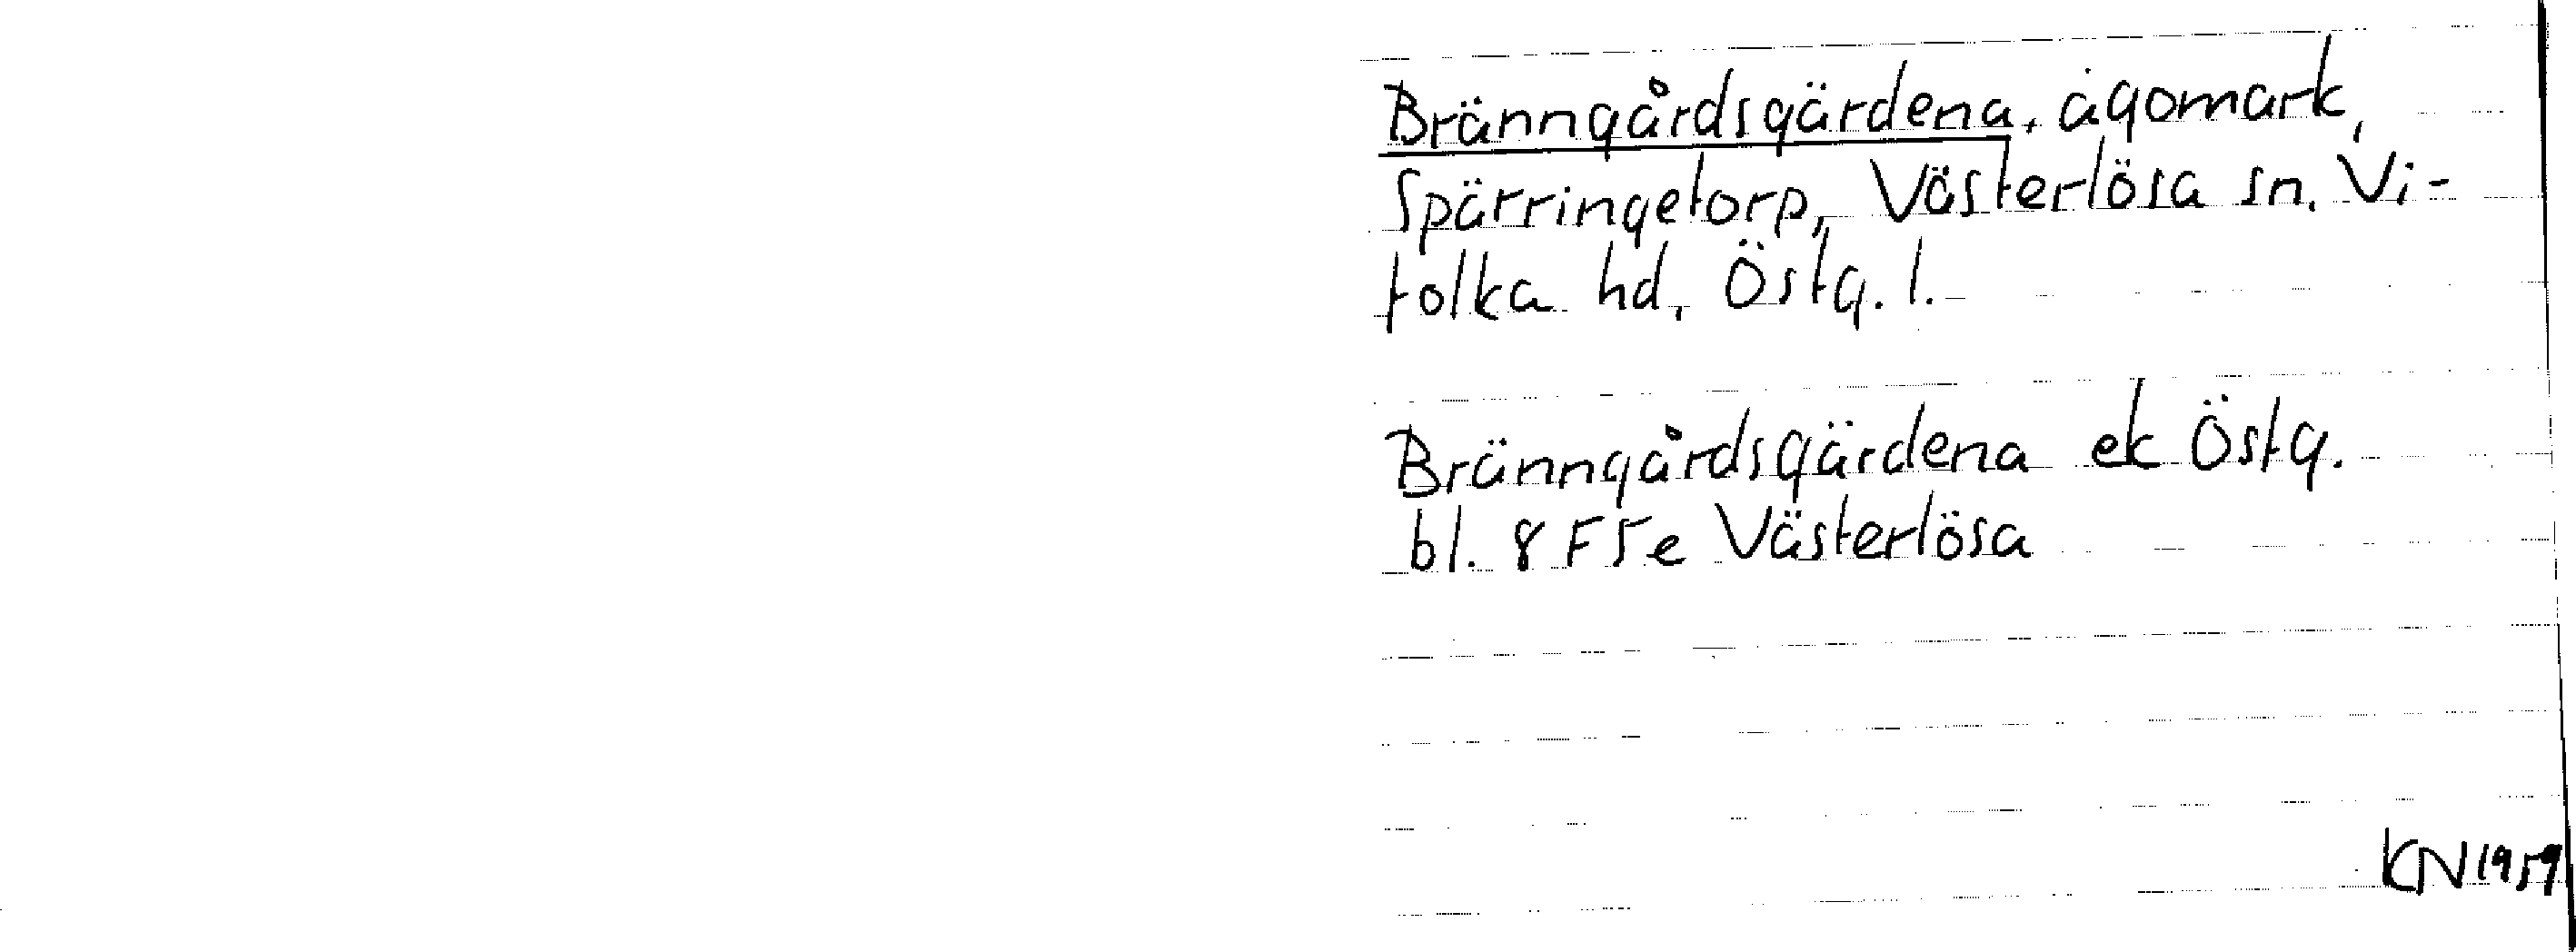 Bränngårdsgärdena, ägomark,
Spärringetorp, Västerlösa sn. Vi-
tolka hd, Östg. l.
Bränngårdsgärdena ek Östg.
bl. 8 F5e Västerlösa
KN 1959